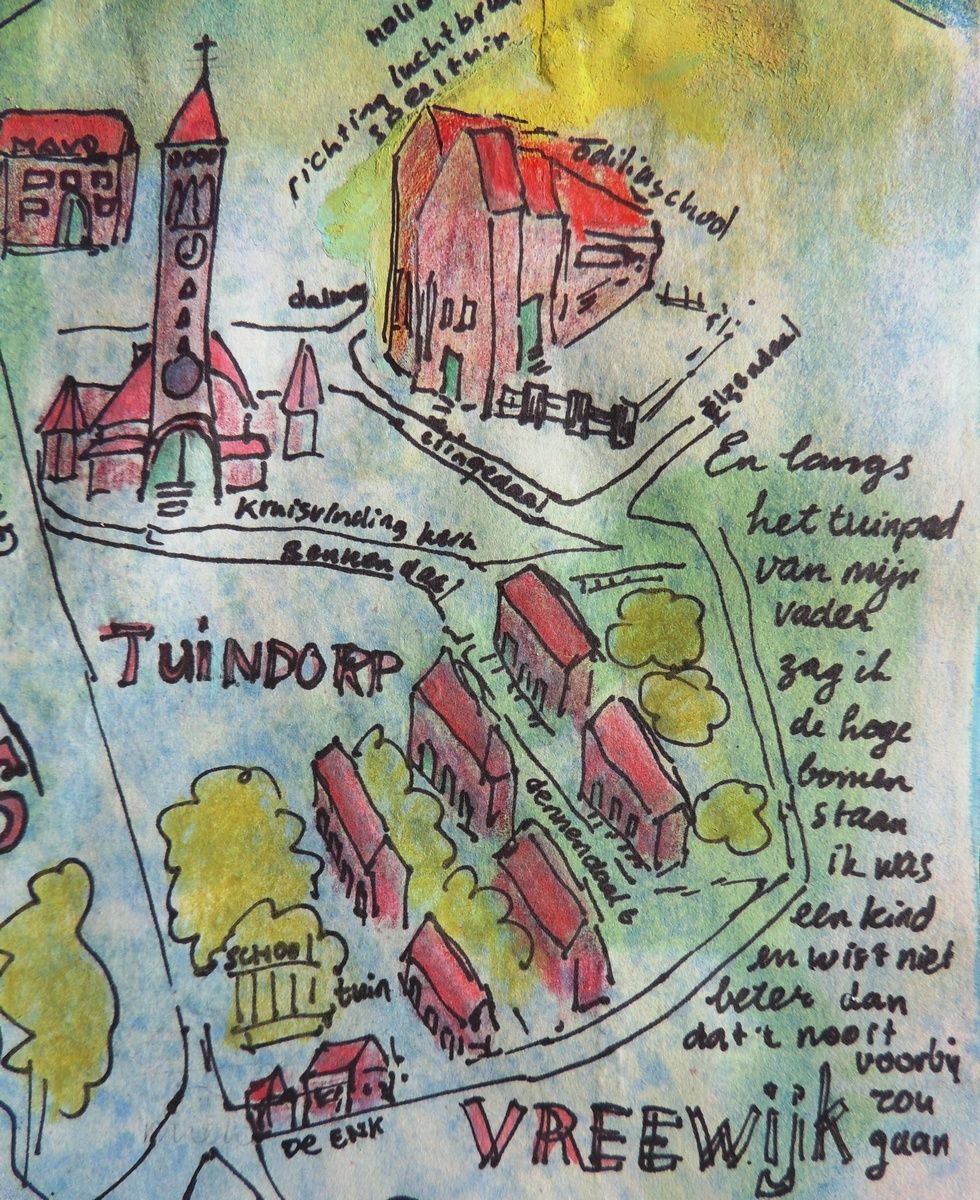 richting luchtbru
speeltuin
MAVO
Odiliaschool
dalweg
Elzendaal
clingedaal
Kruisvinding kerk
Bennendaal
TUINDORP
dennendaal 6
SCHOOL
tuin
DE ENK
VREEWIJK
En langs
het tuinpad
van mijn
vader
zag ik
de hoge
bomen
staan
ik was
een kind
en wist niet
beter dan
dat 't nooit
voorbij
zou
gaan